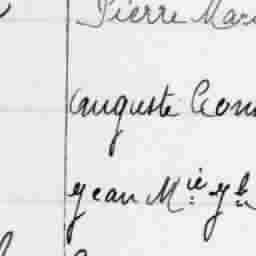 Pierre Mari
Auguste Con
Jean Mie Jh